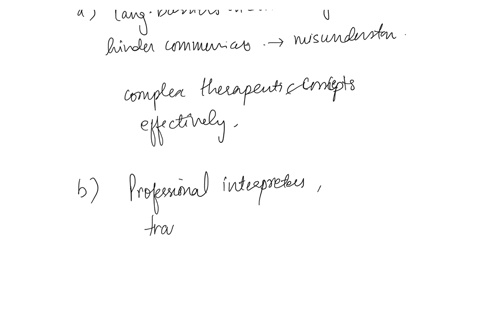 a) lang. barriers
hinder communicas. → misunderstan.
complex therapeuts concepts
effectively.
b) Professional interpreters,
tra